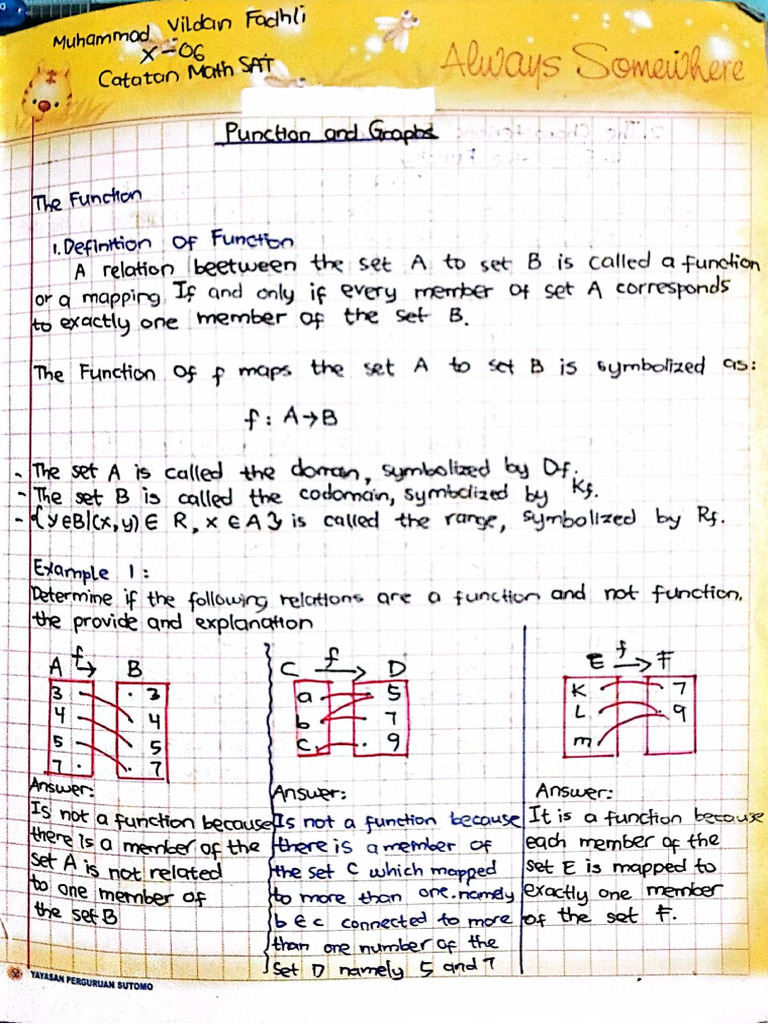 Muhammad Vildan Fadhli
X-06
Catatan Math SAT
Always Somewhere
Punction and Graphs
The Function
1. Definition Of Function
A relation beetween the set A to set B is called a function
or a mapping If and only if every member of set A corresponds
to exactly one member of the set B.
The Function Of f maps the set A to set B is symbolized as:
f : A→B
- The set A is called the domain, symbolized by Df.
- The set B is called the codomain, symbolized by Kf.
- {y∈B|(x,y)∈ R, x ∈ A} is called the range, symbolized by Rf.
Example 1:
Determine if the following relations are a function and not function,
the provide and explanation
A f→ B
3 3
4 4
5 5
7 7
Answer:
Is not a function because
there is a member of the
set A is not related
to one member of
the set B
C f→ D
a 5
b 7
c 9
Answer:
Is not a function because
there is a member of
the set C which mapped
to more than one. namely
b ∈ c connected to more
than one number of the
set D namely 5 and 7
E f→ F
K 7
L 9
m
Answer:
It is a function because
each member of the
set E is mapped to
exactly one member
of the set F.
YAYASAN PERGURUAN SUTOMO